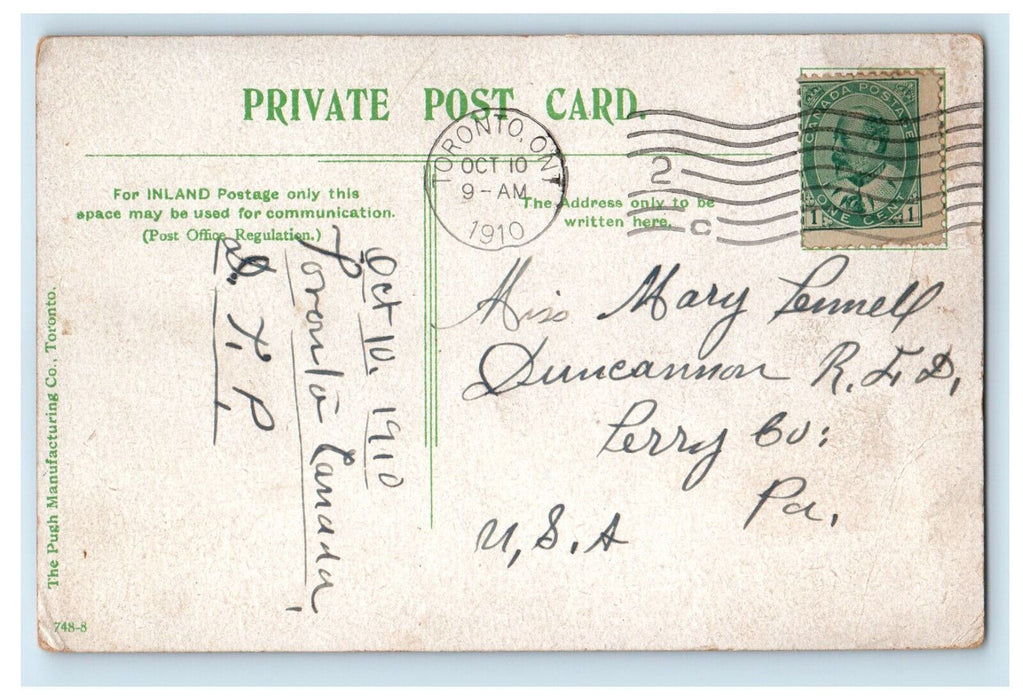 PRIVATE POST CARD.
TORONTO, ONT
OCT 10
9-AM
1910
2
c
CANADA POSTAGE
1 ONE CENT 1
For INLAND Postage only this
space may be used for communication.
(Post Office Regulation.)
The Address only to be
written here.
Oct 10. 1910
Toronto Canada,
Miss Mary Pennell
Duncannon R.F.D,
Perry Co:
Pa,
U,S.A
The Pugh Manufacturing Co., Toronto.
748-8